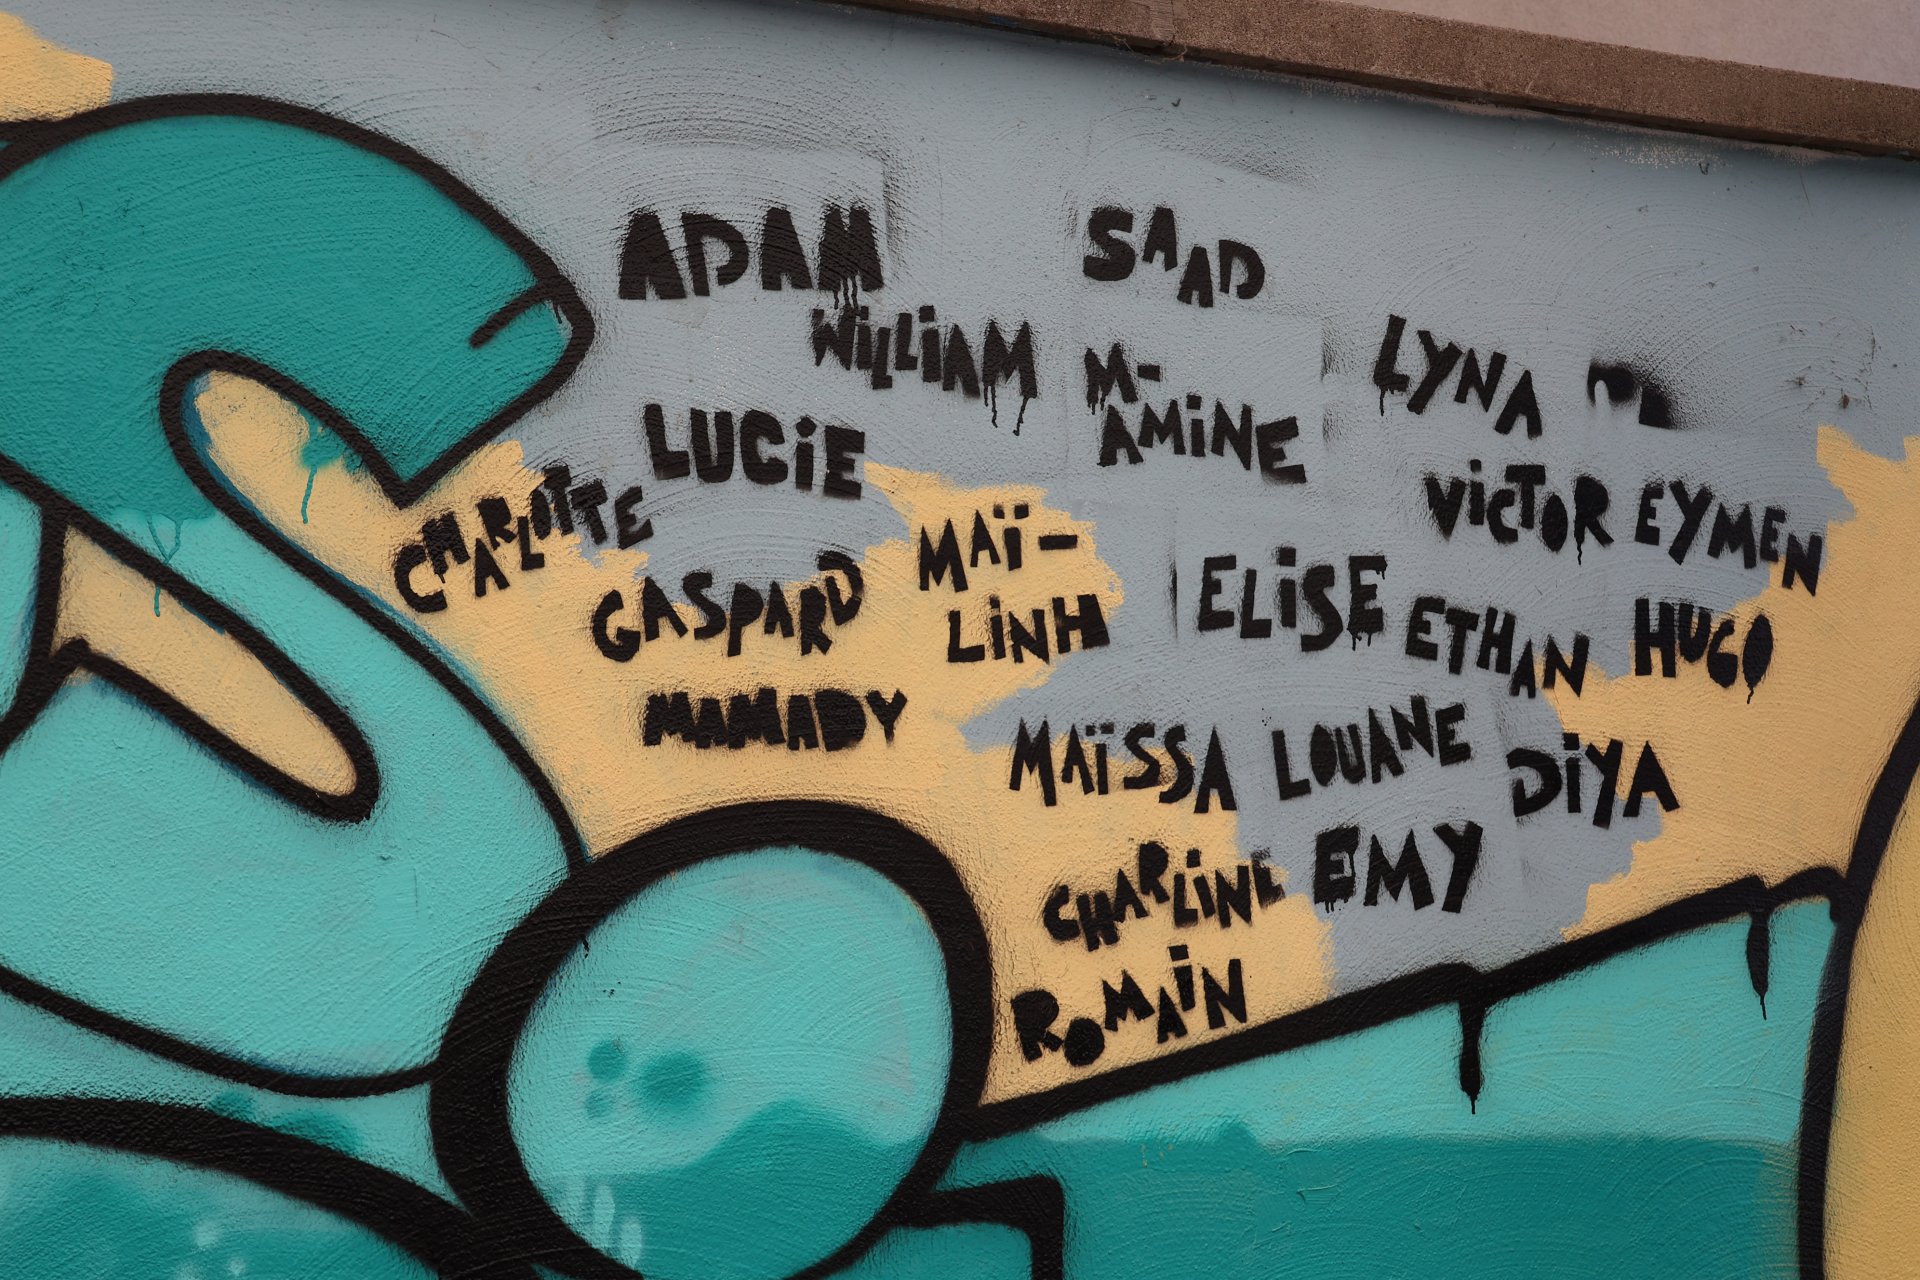 ADAM
SAAD
WiLLiAM
M-
AMiNE
LYNA
LUCiE
CHARLOTTE
ViCTOR
EYMEN
MAÏ-
LiNH
GASPARD
ELiSE
ETHAN
HUGO
MAMADY
MAÏSSA
LOUANE
DiYA
CHARLiNE
EMY
ROMAiN